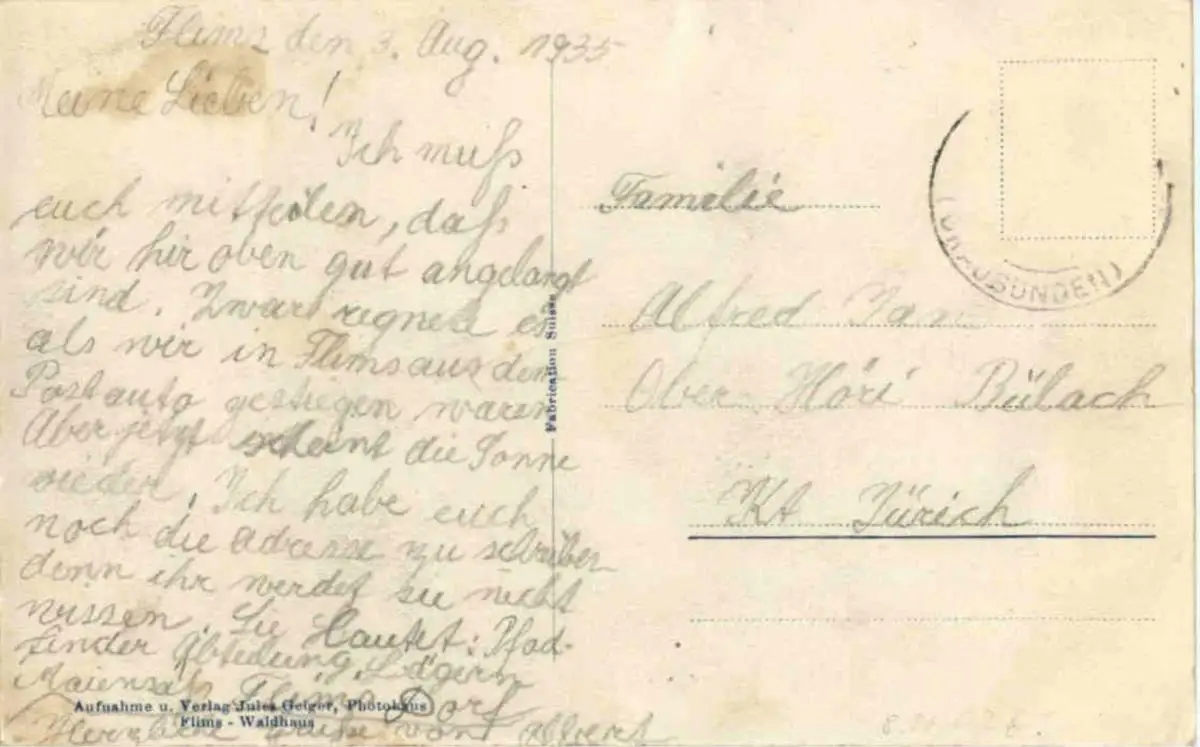 Flims den 3. Aug. 1935
Meine Lieben!
Ich muß
euch mitteilen, daß
wir hir oben gut angelangt
sind. Zwar regnete es
als wir in Flims aus dem
Postauto gestiegen waren
Aber jetzt scheint die Sonne
wieder. Ich habe euch
noch die Adresse zu schreiben
denn ihr werdet sie nicht
wissen. Sie Lautet: Pfad-
finder Abteilung, Lägern
Maiensäss Flims Dorf
Herzliche Grüsse von Albert
Aufnahme u. Verlag Jules Geiger, Photohaus
Flims - Waldhaus
Fabrication Suisse
(GRAUBÜNDEN)
Familie
Alfred
Ober Höri Bülach
Kt Zürich